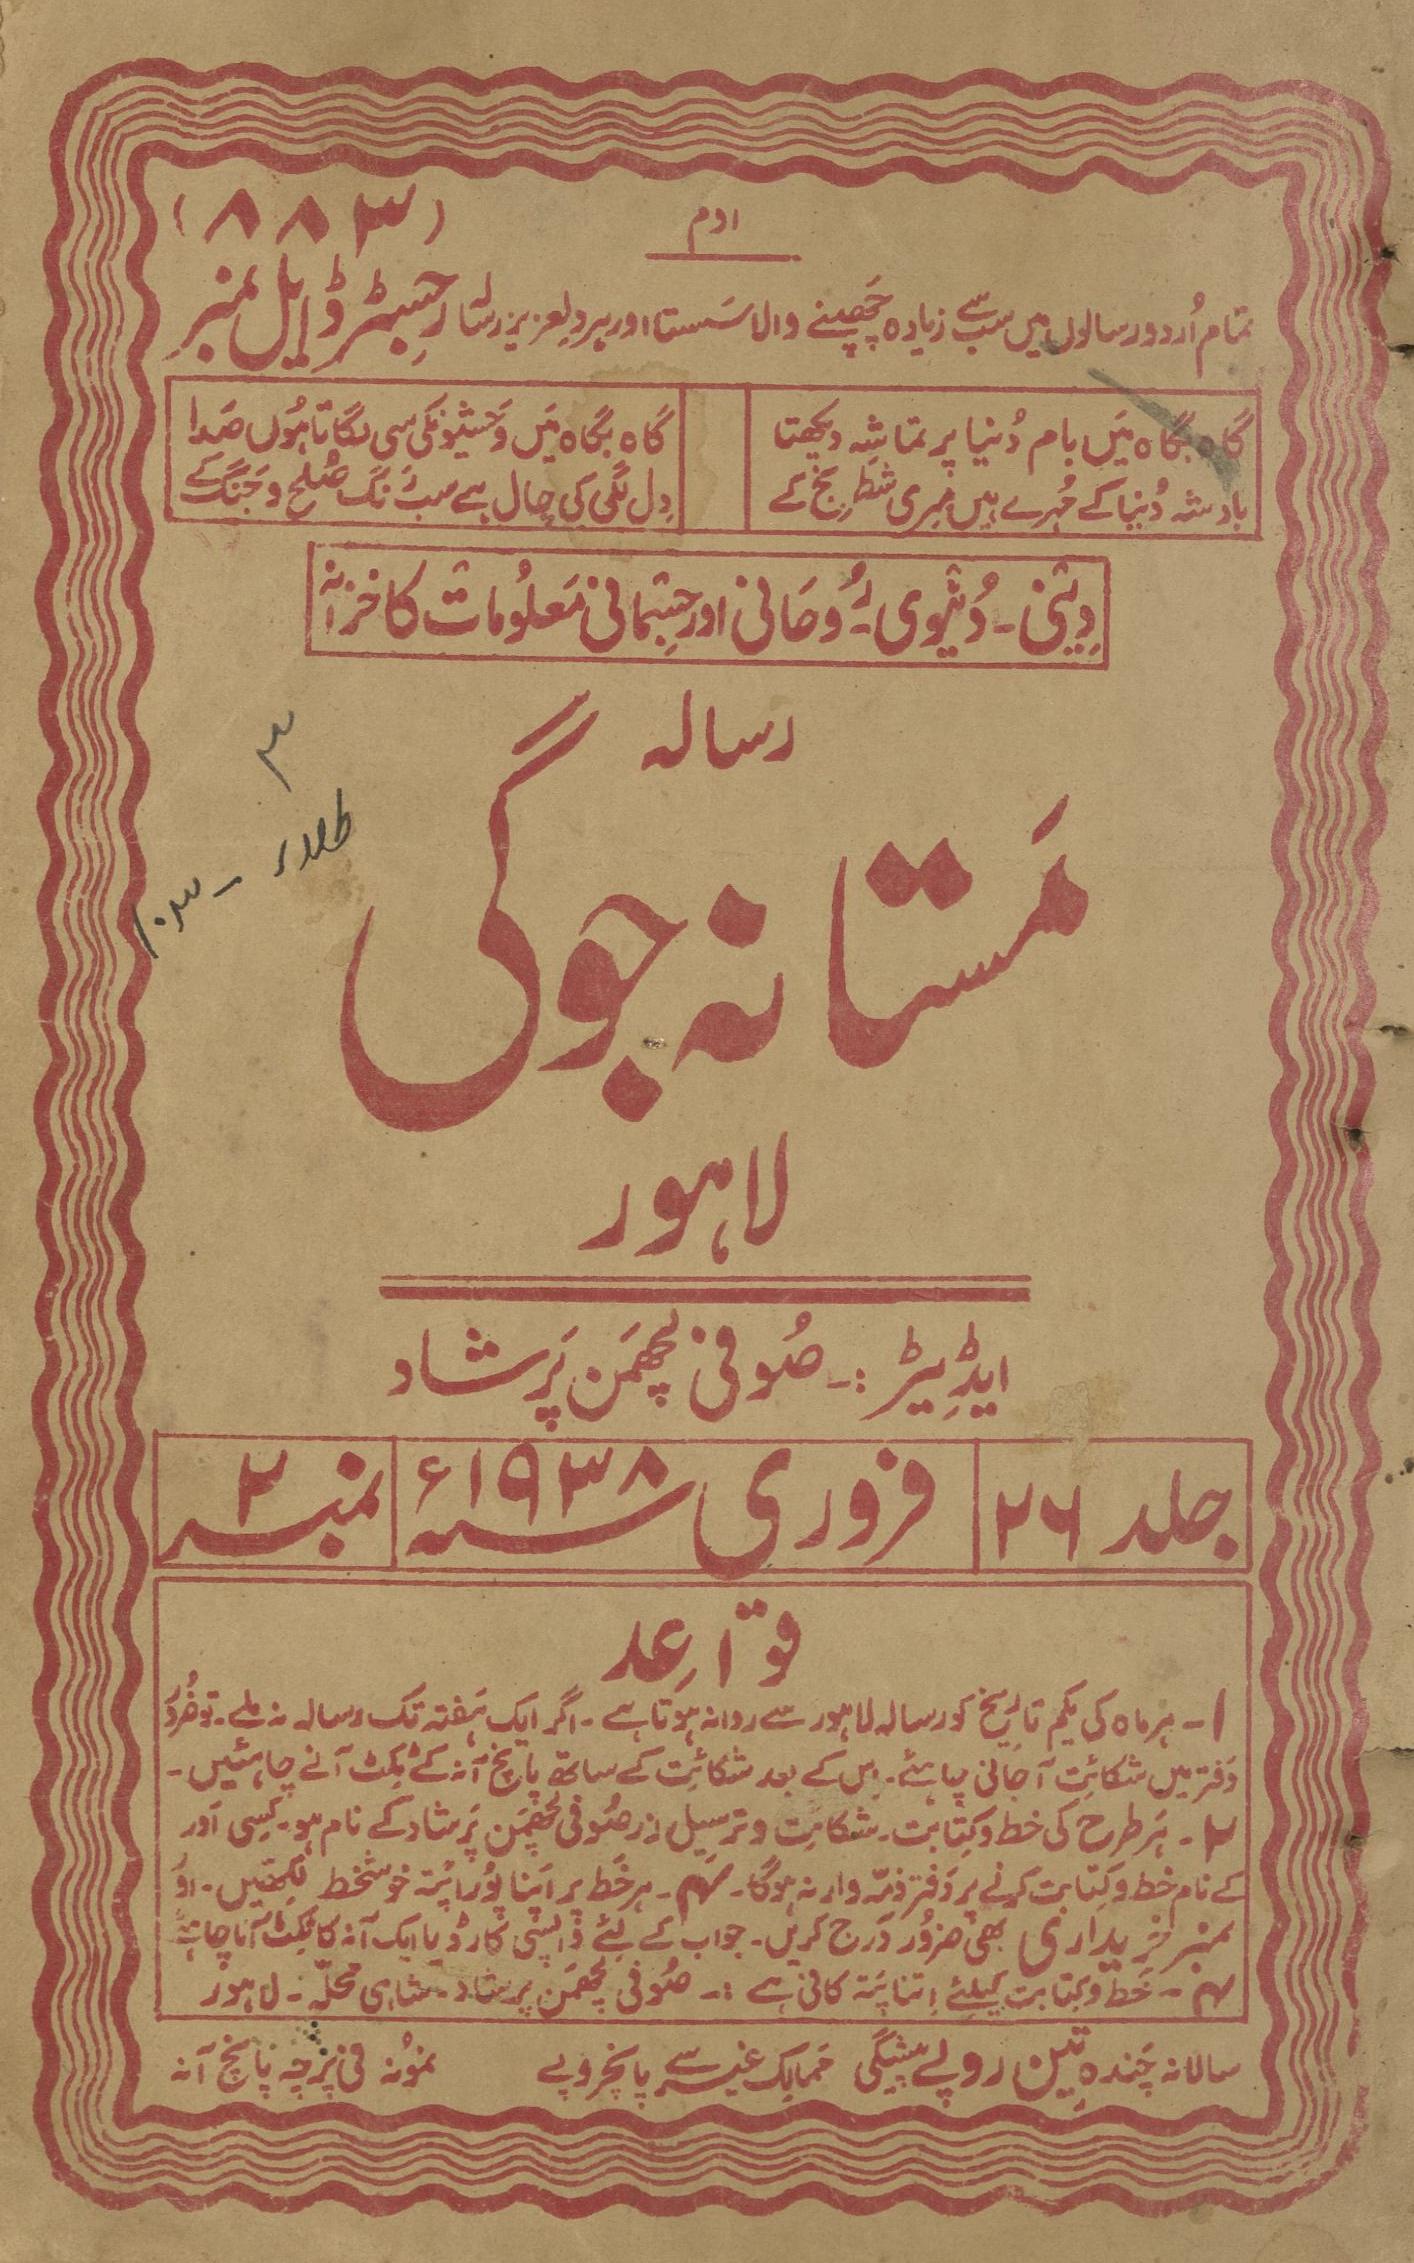 اوم
(۸۸۳)
تمام اُردو رسالوں میں سب سے زیادہ چھپنے والا سستا اور ہر دلعزیز رسالہ رجسٹرڈ ایل نمبر
گاہ بگاہ میں بام دُنیا پر تماشہ دیکھتا
بادشہ دُنیا کے مُہرے ہیں میری شطرنج کے
گاہ بگاہ میں وحشیونکی سی لگاتا ہُوں صدا
دِل لگی کی چال ہے سب رنگ صُلح و جنگ کے
دِینی ۔ دُنیوی ۔ رُوحانی اور جِسمانی معلُومات کا خزانہ
رسالہ
مَستانہ جوگی
لاہور
ایڈیٹر :۔ صُوفی لچھمن پَرشاد
جلد ۲۶
فروری سنہ ۱۹۳۸ء
نمبر ۲
قواعِد
۱ ۔ ہر ماہ کی یکم تاریخ کو رسالہ لاہور سے روانہ ہوتا ہے ۔ اگر ایک ہفتہ تک رسالہ نہ ملے ۔ تو ضُرور
دفتر میں شکائت آجانی چاہئے ۔ اِس کے بعد شکائت کے ساتھ پانچ آنہ کے ٹکٹ آنے چاہئیں ۔
۲ ۔ ہَر طرح کی خط و کِتابت ۔ شکائت و ترسیل زر صُوفی لچھمن پَرشاد کے نام ہو ۔ کِسی اَور
کے نام خط و کِتابت کرنے پر دَفتر ذمّہ وار نہ ہوگا ۔ ۳ ۔ ہر خَط پر اَپنا پُورا پتہ خوشخط لِکھّیں ۔ اور
نمبر خریداری بھی ضرُور دَرج کریں ۔ جواب کے لئے واپسی کارڈ یا ایک آنہ کا ٹکٹ آنا چاہئے
۴ ۔ خَط و کِتابت کیلئے اِتنا پتہ کافی ہے :۔ صُوفی لچھمن پرشاد ۔ شاہی محلّہ ۔ لاہور
سالانہ چندہ تین روپے پیشگی
ممالک غیر سے پانچروپے
نمُونہ فی پرچہ پانچ آنہ